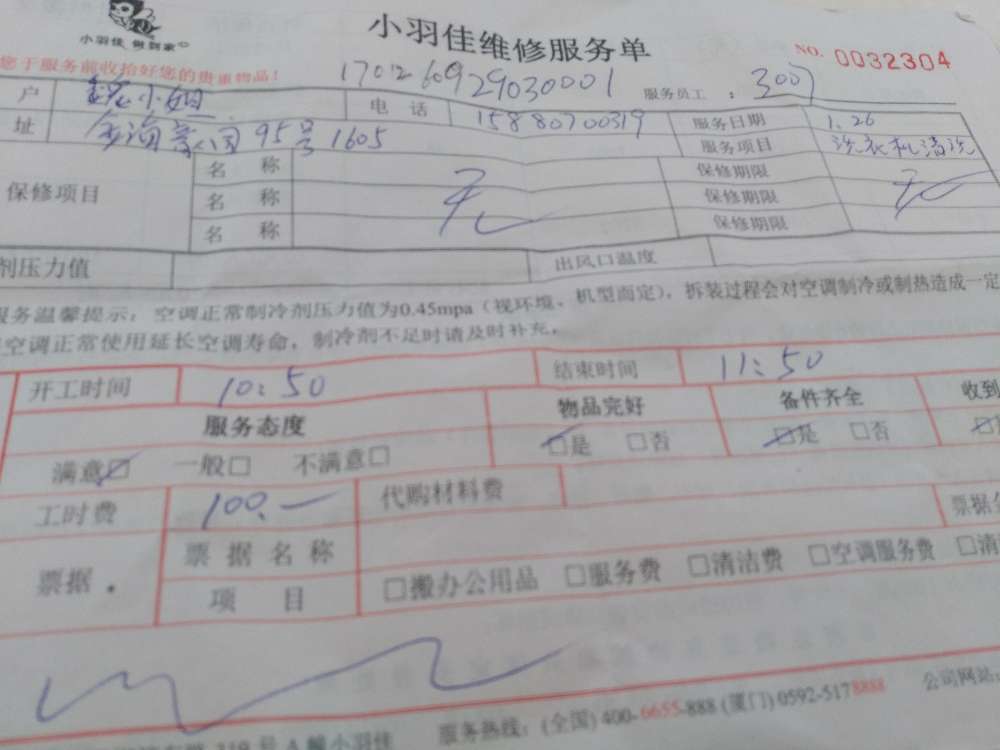 小羽佳 做到家
小羽佳维修服务单
NO. 0032304
您于服务前收拾好您的贵重物品!
1701260929030001
服务员工 : 3007
户 小姐 电 话 15880700319 服务日期 1.26
址 95号1605 服务项目 洗衣机清洗
保修项目 名 称 无 保修期限 无
名 称 保修期限
名 称 保修期限
剂压力值 出风口温度
服务温馨提示: 空调正常制冷剂压力值为0.45mpa(视环境、机型而定), 拆装过程会对空调制冷或制热造成一定
空调正常使用延长空调寿命, 制冷剂不足时请及时补充。
开工时间 10:50 结束时间 11:50
服务态度 物品完好 备件齐全 收到
满意☑ 一般□ 不满意□ ☑是 □否 ☑是 □否
工时费 100.— 代购材料费
票据 票据名称 票据
项 目 □搬办公用品 □服务费 □清洁费 □空调服务费 □清
319 号 A 小羽佳 服务热线: (全国) 400-6655-888 (厦门) 0592-5178888 公司网站: